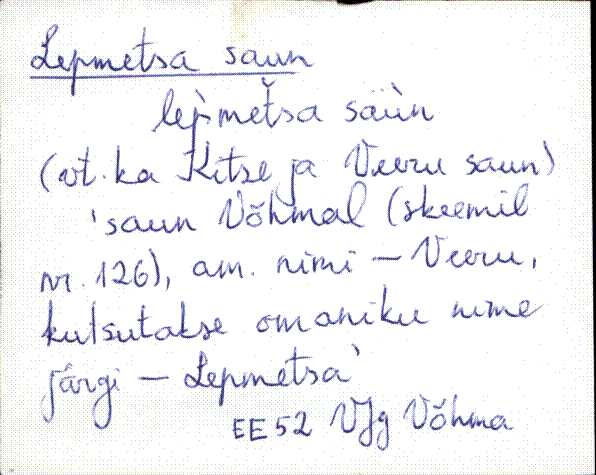 Lepmetsa saun
lep̀metsa säùn
(vt. ka Kitse ja Veeru saun)
'saun Võhmal (skeemil
nr. 126), am. nimi – Veeru,
kutsutakse omaniku nime
järgi – Lepmetsa'
EE52 VJg Võhma